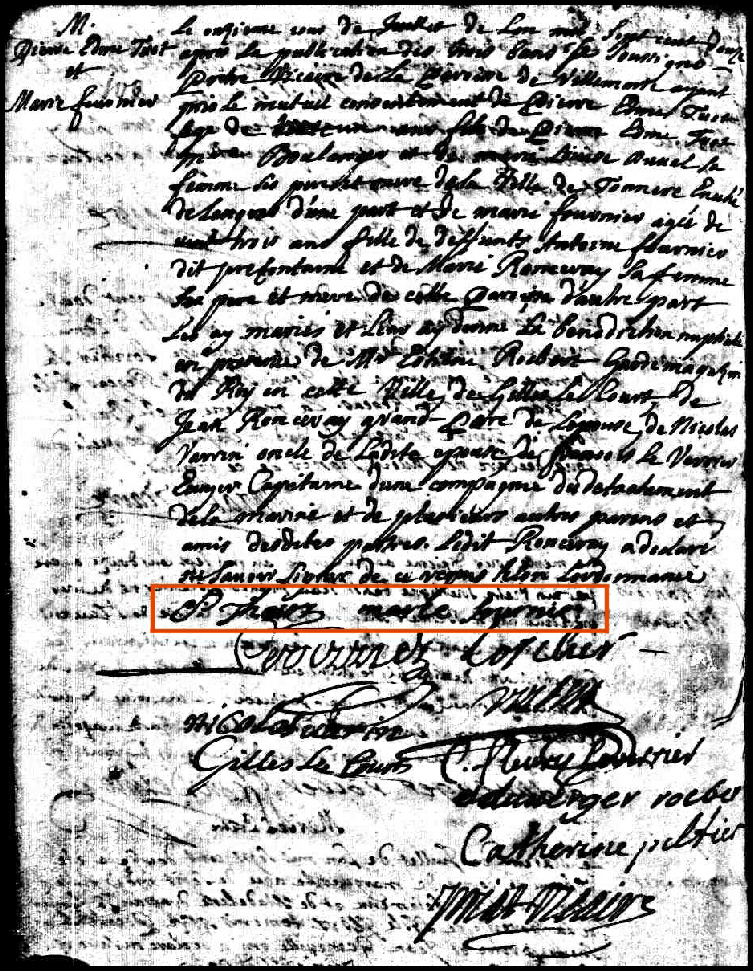 M.
Pierre Edme Tuot
et
Marie fournier
Le onzieme jour de Juillet de Lan mil Sept cent Douze
apres la publication des trois bans Je Soussigné
Pretre Vicaire de la Paroisse de Villemarie ayant
pris le mutuel consentement de Pierre Edme Tuot
age de ans fils de Pierre Edme Tuot
Boulanger et de marie Louise Sa
femme Ses pere et mere de la Ville de Tonnere Eveché
de Langres d'une part et de marie fournier agée de
vint trois ans fille de deffunts Antoine fournier
dit prefontaine et de Marie Ronceray Sa femme
Ses pere et mere de cette Paroisse d'autre part
Les ay mariés et Leur ay donné La benediction nuptiale
en presence de Mr Estienne Rocbert Garde magazin
du Roy en cette Ville, de Gilles Le Court, de
Jean Ronceray grand Pere de Lepouse, de Nicolas
Varin oncle de Ladite epouse, de françois Le Verrier
Ecuyer Capitaine d'une compagnie du detachement
de la marine et de plusieurs autres parens et
amis desdites parties. Ledit Ronceray a declaré
ne Savoir Signer de ce requis Selon Lordonnance
marie fournie
nicolas varin
Gilles Le Court
C. fleury Leverrier
duverger rocber
Catherine peltier
Priat Vicaire